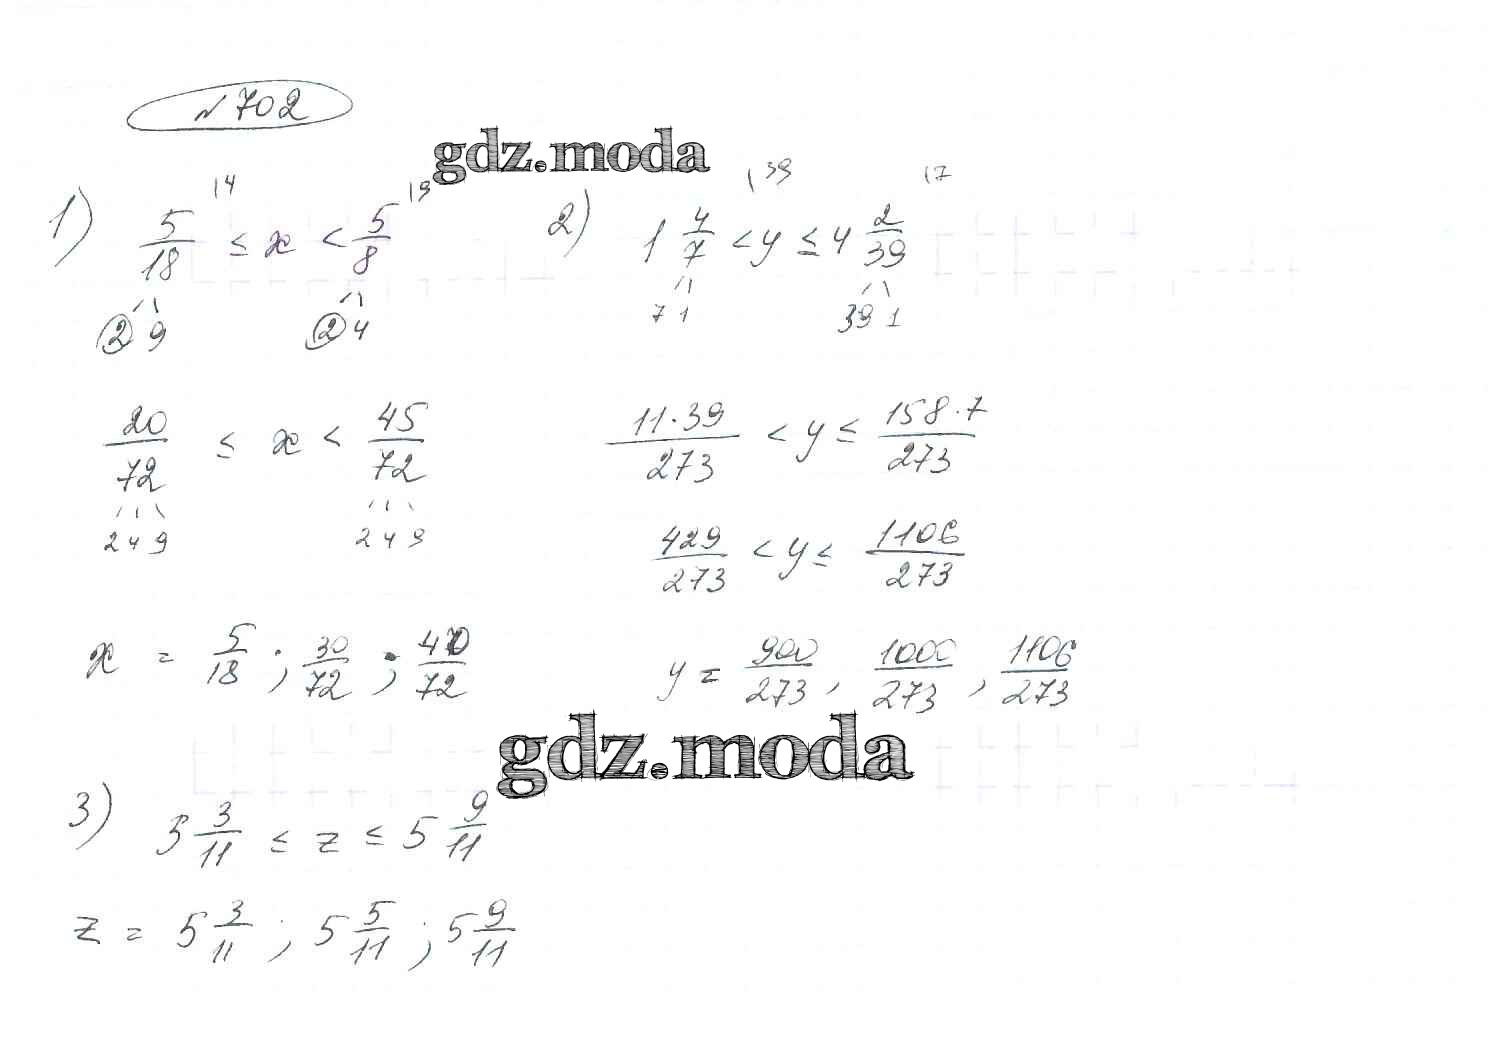 №702
gdz.moda
1) 5/18 |4 ≤ x < 5/8 |9
2 9   2 4
20/72 ≤ x < 45/72
2 4 9   2 4 9
x = 5/18 ; 30/72 ; 40/72
2) 1 4/7 |39 < y ≤ 4 2/39 |7
7 1   39 1
11·39/273 < y ≤ 158·7/273
429/273 < y ≤ 1106/273
y = 900/273 , 1000/273 , 1106/273
gdz.moda
3) 3 3/11 ≤ z ≤ 5 9/11
z = 5 3/11 ; 5 5/11 ; 5 9/11